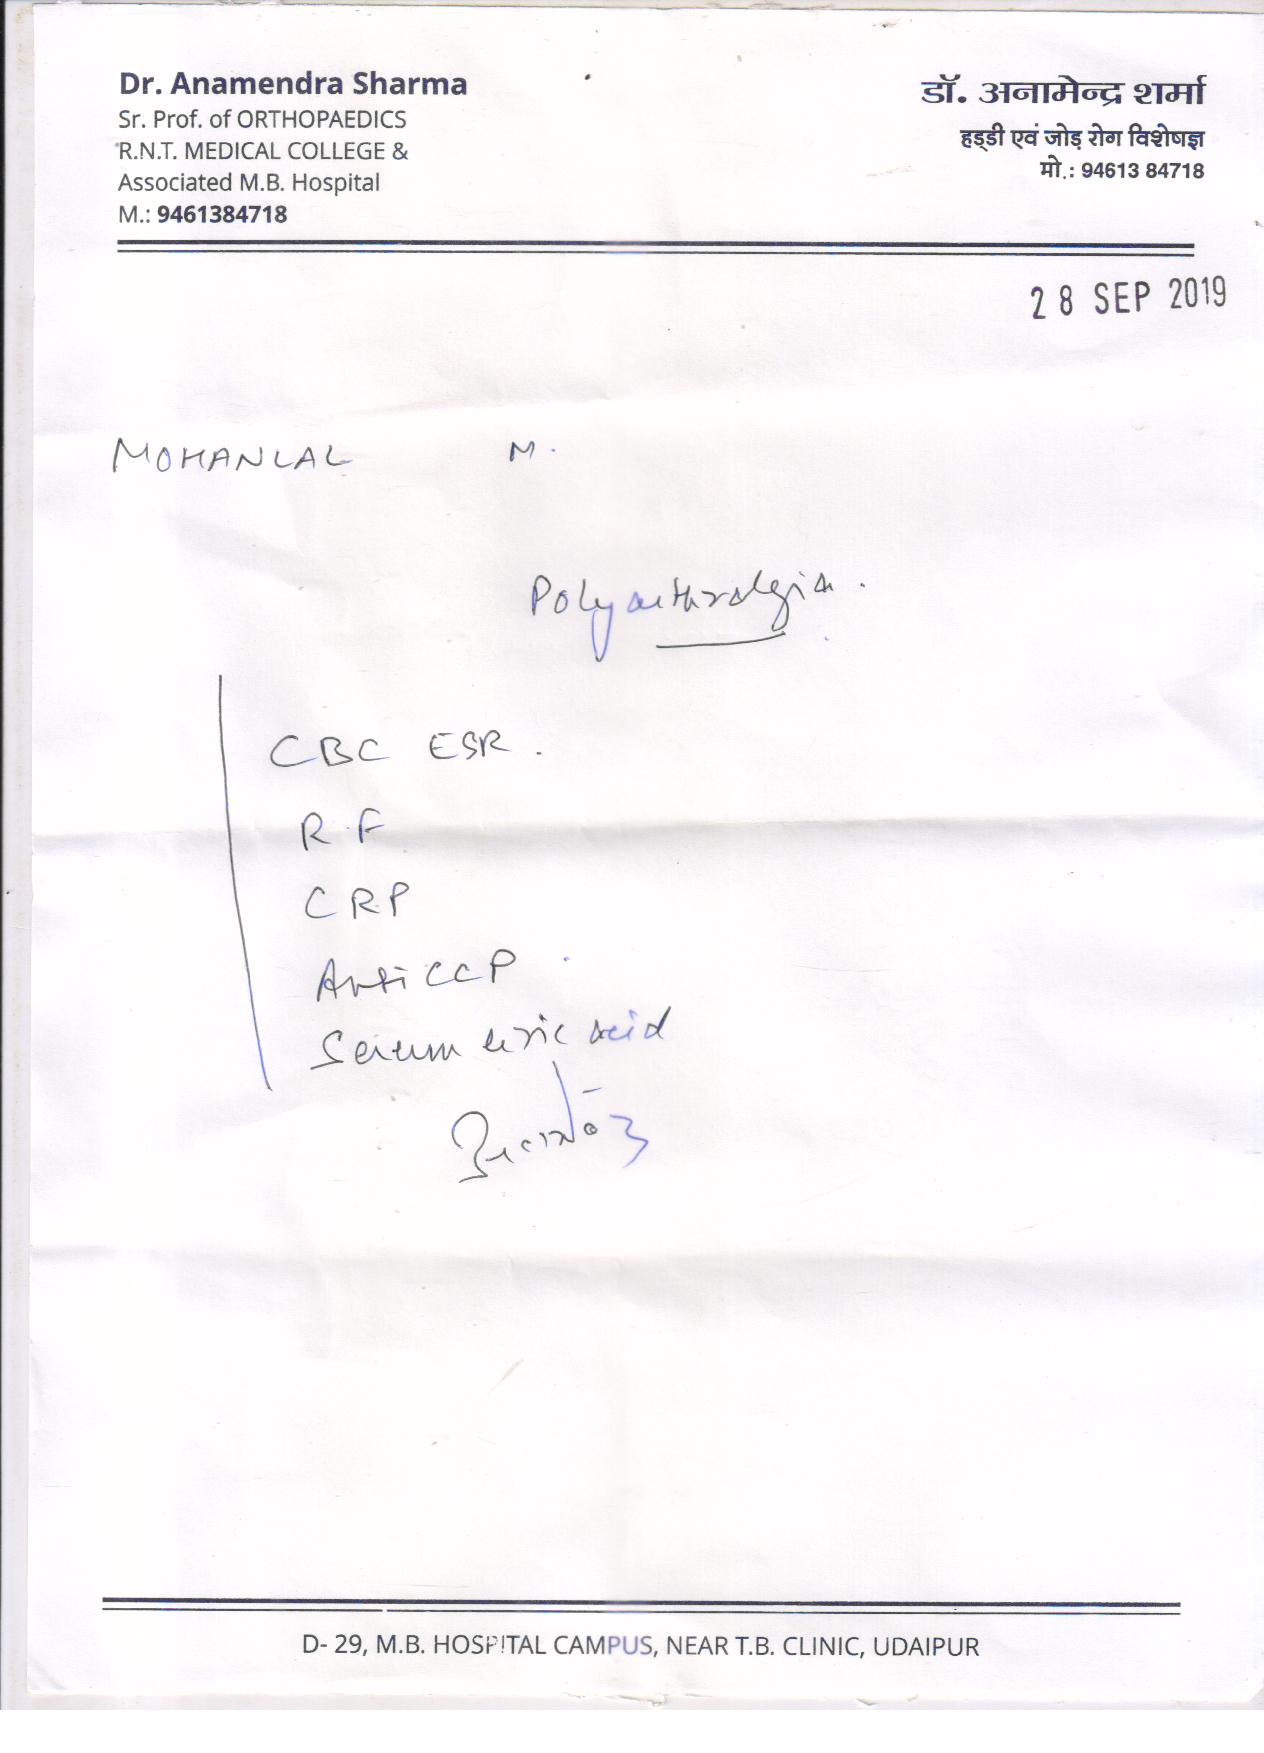 Dr. Anamendra Sharma
Sr. Prof. of ORTHOPAEDICS
R.N.T. MEDICAL COLLEGE &
Associated M.B. Hospital
M.: 9461384718
डॉ. अनामेन्द्र शर्मा
हड्डी एवं जोड़ रोग विशेषज्ञ
मो.: 94613 84718
28 SEP 2019
MOHANLAL M.
Polyarthralgia.
CBC ESR.
R.F
CRP
Anti CCP
Serum uric acid
D- 29, M.B. HOSPITAL CAMPUS, NEAR T.B. CLINIC, UDAIPUR